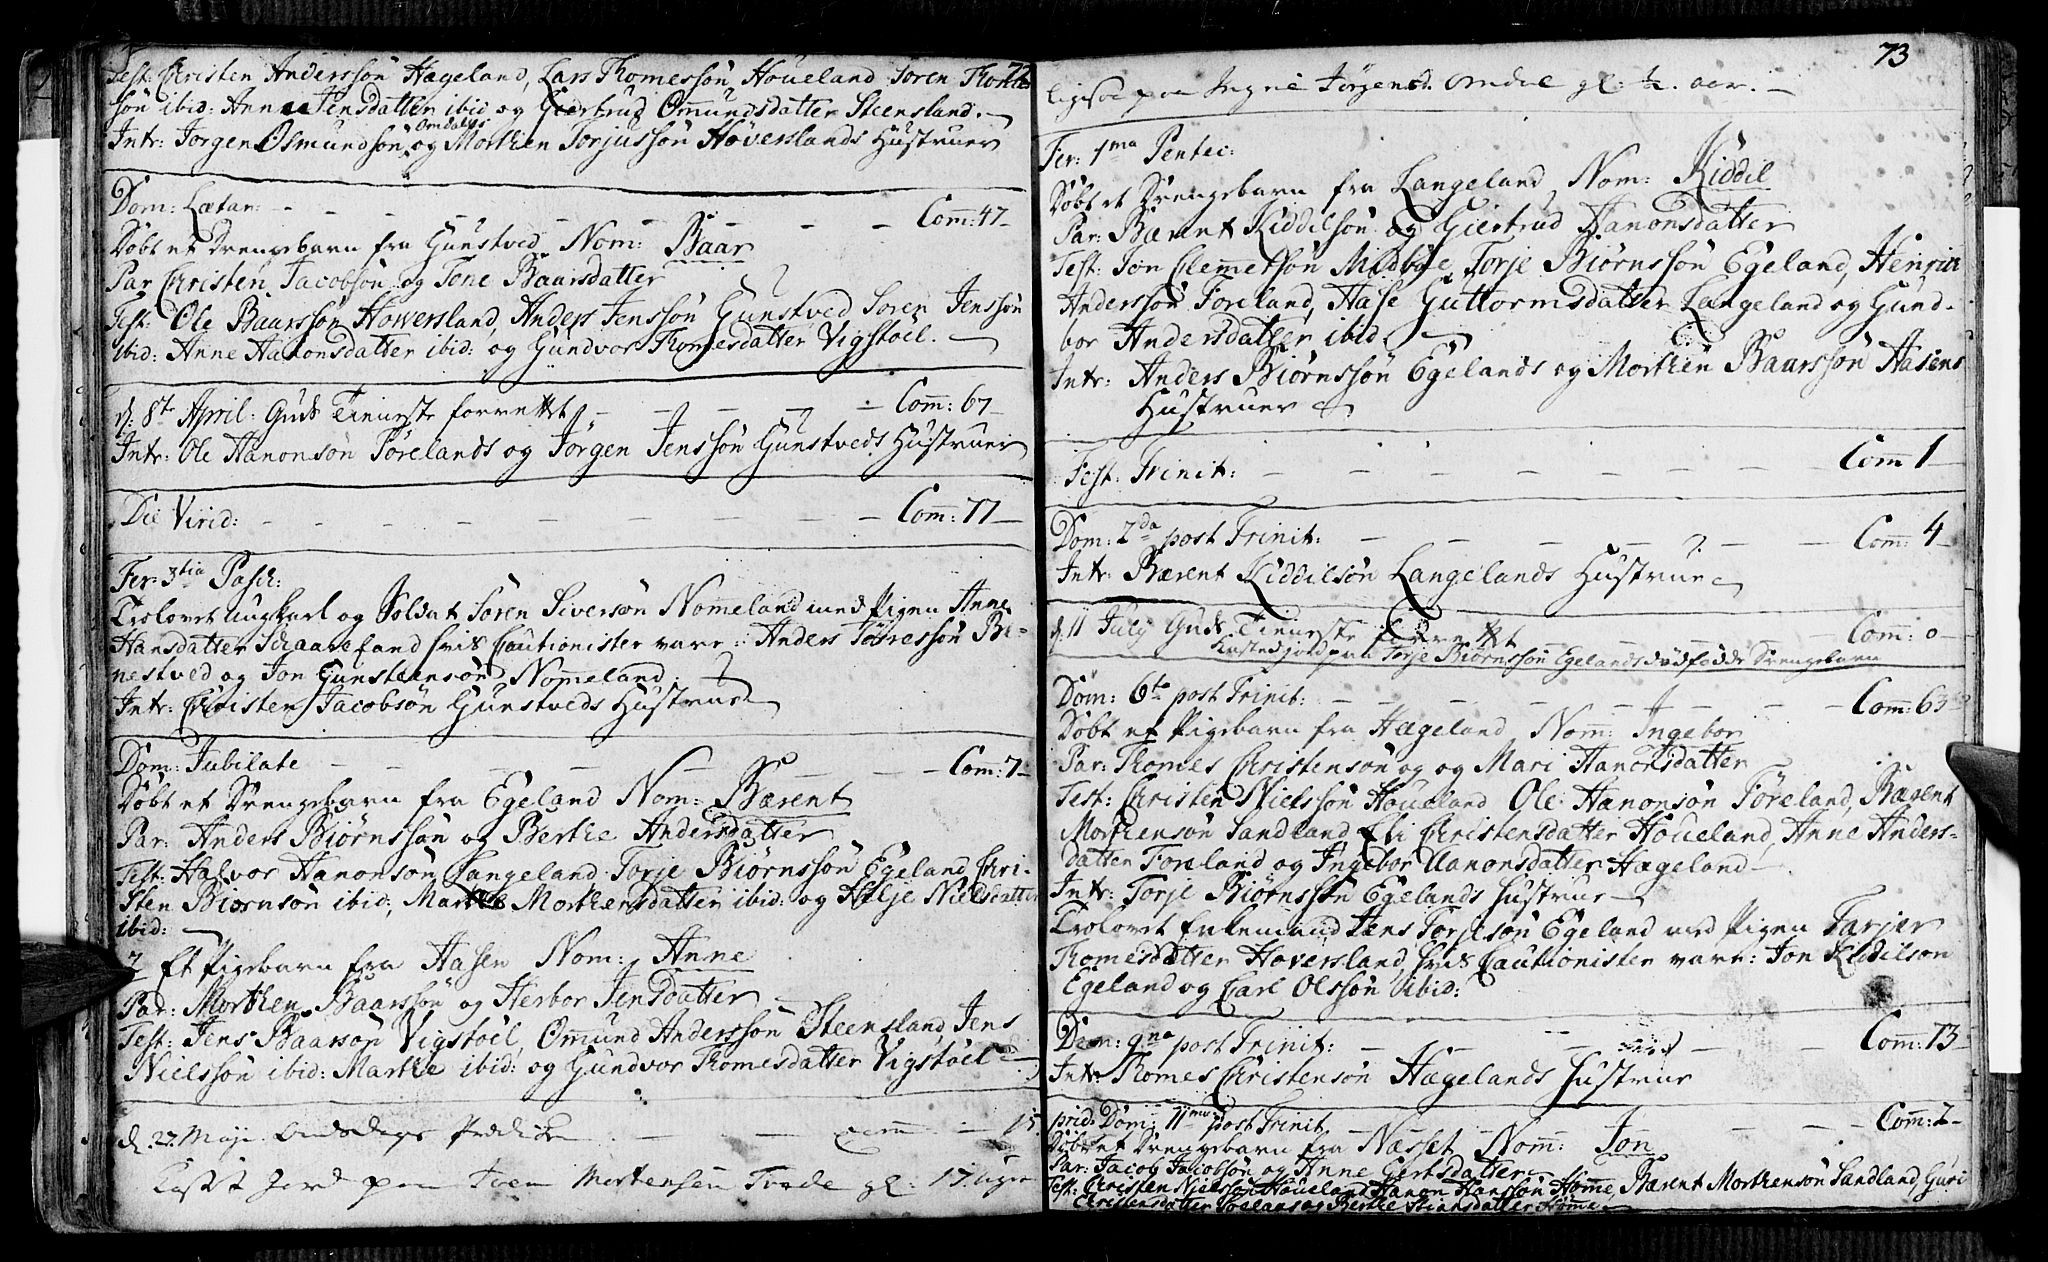 72
Test: Christen Anderssøn Hægeland, Lars Thomessøn Houeland Søren Thom-
søn ibid: Anne Jensdatter ibid og Giertrud Omundsdatter Steensland.
Intr: Jørgen Osmundsøn Omdahls og Morthen Torjussøn Høverslands Hustruer
Dom: Lætar: Com: 47
Døbt et Drengebarn fra Gunstved Nom: Baar
Par Christen Jacobsøn og Tone Baarsdatter
Test: Ole Baarssøn Howersland, Anders Jenssøn Gunstved Søren Jenssøn
ibid: Anne Hanonsdatter ibid: og Gundvor Thomesdatter Vigstøel.
d. 8de April: Guds Tieneste forrettet Com: 67
Intr: Ole Hanonsøn Førelands og Jørgen Jenssøn Gunstveds Hustruer
Die Virid: Com: 77
Fer: 3tia Pasch:
Trolovet Ungkarl og Soldat Søren Siversøn Nomeland med Pigen Anne
Hansdatter Schaaresand hvis Cautionister vare: Anders Tørressøn Be-
nestved og Jon Gunsteensøn Nomeland.
Intr: Christen Jacobsøn Gunstveds Hustrue
Dom: Jubilate Com: 7
Døbt et Drengebarn fra Egeland Nom: Bærent
Par: Anders Biørnssøn og Berthe Andersdatter
Test: Halvor Hanonsøn Langeland Torje Biørnssøn Egeland, Chri-
sten Biørnsøn ibid: Marthe Morthensdatter ibid: og Helje Nielsdatter
ibid:
2 Et Pigebarn fra Hasen Nom: Anne
Par: Morthen Baarssøn og Herbor Jensdatter
Test: Jens Baarsøn Vigstøel, Omund Anderssøn Steensland, Jens
Nielssøn ibid: Marthe ibid: og Gundvor Thomesdatter Vigstøel
d. 27. Maji Onsdags Prædiken com: 15.
Kast Jord paa Sven Mortensøn Tvede gl: 17 uger
73
ligesaa paa Ingne Jørgensd. Omdal gl: ½ aar.
Fer: 1ma Pentec:
Døbt et Drengebarn fra Langeland Nom: Kiddil
Par: Bærent Kiddilsøn og Giertrud Hanonsdatter
Test: Jon Clemetsøn Midbøe, Torje Biørnssøn Egeland, Henrik
Anderssøn Foreland, Hase Guttormsdatter Langeland og Gund-
bor Andersdatter ibid.
Intr: Anders Biørnssøn Egelands og Morthen Baarssøn Hasens
Hustruer
Fest: Trinit: Com 1
Dom: 2da post Trinit: Com: 4
Intr: Bærent Kiddilsøn Langelands Hustrue
d. 11 July Guds Tieneste forrettet Com: 0
Kasted jord paa Torje Biørnssøn Egelands dødfødde Drengebarn
Dom: 6ta post Trinit: Com: 63
Døbt et Pigebarn fra Hægeland Nom: Ingebor
Par: Thomes Christensøn og og Mari Hanonsdatter
Test: Christen Nielssøn Houeland Ole Hanonsøn Føreland, Bærent
Morthensøn Sandland Eli Christensdatter Houeland, Anne Anders-
datter Foreland og Ingebor Aanonsdatter Hægeland
Intr: Torje Biørnssøn Egelands Hustrue
Trolovet Enkemand Jens Torjesøn Egeland med Pigen Tarjer
Thomesdatter Hoversland hvis Cautionister vare: Jon Kiddilsøn
Egeland og Carl Olssøn ibid:
Dom: 9na post Trinit: Com: 73
Intr: Thomes Christensøn Hægelands Hustrue
prid: Dom: 11ma post Trinit. Com: 2
Døbt et Drengebarn fra Næsset Nom: Jon
Par: Jacob Jacobsøn og Anne Gertsdatter
Test: Christen Nielssøn Houeland, Hanon Hanssøn Homme, Bærent Morthensøn Sandland, Guri
Christensdatter og Berthe Stiansdatter Homme